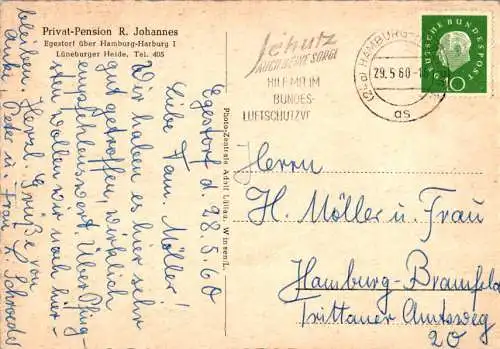 Privat-Pension R. Johannes
Egestorf über Hamburg-Harburg I
Lüneburger Heide, Tel. 405
Egestorf d. 28.5.60
Liebe Fam. Möller!
Wir haben es hier sehr
gut getroffen, wirklich
empfehlenswert. Über Pfing-
sten wollen wir noch hier
bleiben. Herzl. Grüße von
Peter u. Frau L. Schroeder
Photo-Zentrale Adolf Lüllau, Winsen/L.
Schutz
AUCH DEINE SORGE
HILF MIT IM
BUNDES-
LUFTSCHUTZV
(24a) HAMBURG
29.5.60
DEUTSCHE BUNDESPOST
10
Herrn
H. Möller u. Frau
Hamburg-Bramfeld
Trittauer Amtsweg
20